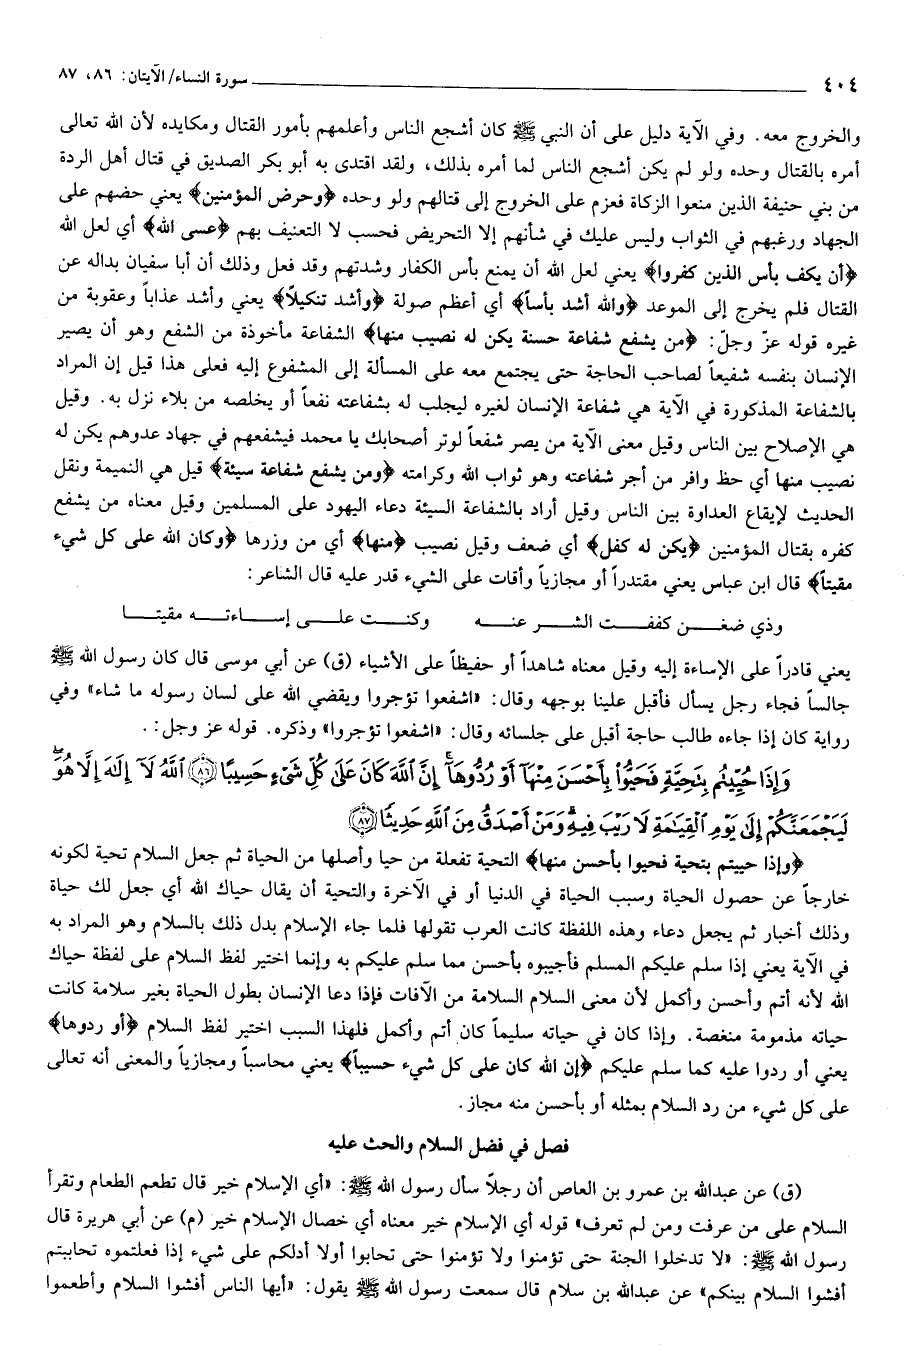 ٤٠٤ سورة النساء/ الآيتان: ٨٦، ٨٧
والخروج معه. وفي الآية دليل على أن النبي ﷺ كان أشجع الناس وأعلمهم بأمور القتال ومكايده لأن الله تعالى
أمره بالقتال وحده ولو لم يكن أشجع الناس لما أمره بذلك، ولقد اقتدى به أبو بكر الصديق في قتال أهل الردة
من بني حنيفة الذين منعوا الزكاة فعزم على الخروج إلى قتالهم ولو وحده ﴿وحرض المؤمنين﴾ يعني حضهم على
الجهاد ورغبهم في الثواب وليس عليك في شأنهم إلا التحريض فحسب لا التعنيف بهم ﴿عسى الله﴾ أي لعل الله
﴿أن يكف بأس الذين كفروا﴾ يعني لعل الله أن يمنع بأس الكفار وشدتهم وقد فعل وذلك أن أبا سفيان بداله عن
القتال فلم يخرج إلى الموعد ﴿والله أشد بأساً﴾ أي أعظم صولة ﴿وأشد تنكيلاً﴾ يعني وأشد عذاباً وعقوبة من
غيره قوله عزّ وجلّ: ﴿من يشفع شفاعة حسنة يكن له نصيب منها﴾ الشفاعة مأخوذة من الشفع وهو أن يصير
الإنسان بنفسه شفيعاً لصاحب الحاجة حتى يجتمع معه على المسألة إلى المشفوع إليه فعلى هذا قيل إن المراد
بالشفاعة المذكورة في الآية هي شفاعة الإنسان لغيره ليجلب له بشفاعته نفعاً أو يخلصه من بلاء نزل به. وقيل
هي الإصلاح بين الناس وقيل معنى الآية من يصر شفعاً لوتر أصحابك يا محمد فيشفعهم في جهاد عدوهم يكن له
نصيب منها أي حظ وافر من أجر شفاعته وهو ثواب الله وكرامته ﴿ومن يشفع شفاعة سيئة﴾ قيل هي النميمة ونقل
الحديث لإيقاع العداوة بين الناس وقيل أراد بالشفاعة السيئة دعاء اليهود على المسلمين وقيل معناه من يشفع
كفره بقتال المؤمنين ﴿يكن له كفل﴾ أي ضعف وقيل نصيب ﴿منها﴾ أي من وزرها ﴿وكان الله على كل شيء
مقيتاً﴾ قال ابن عباس يعني مقتدراً أو مجازياً وأقات على الشيء قدر عليه قال الشاعر:
وذي ضغـــن كففـــت الشـــر عنـــه وكنـــت علـــى إســـاءتـــه مقيتـــا
يعني قادراً على الإساءة إليه وقيل معناه شاهداً أو حفيظاً على الأشياء (ق) عن أبي موسى قال كان رسول الله ﷺ
جالساً فجاء رجل يسأل فأقبل علينا بوجهه وقال: «اشفعوا تؤجروا ويقضي الله على لسان رسوله ما شاء» وفي
رواية كان إذا جاءه طالب حاجة أقبل على جلسائه وقال: «اشفعوا تؤجروا» وذكره. قوله عز وجل: .
وَإِذَا حُيِّيتُم بِتَحِيَّةٍ فَحَيُّوا۟ بِأَحْسَنَ مِنْهَآ أَوْ رُدُّوهَآ ۗ إِنَّ ٱللَّهَ كَانَ عَلَىٰ كُلِّ شَىْءٍ حَسِيبًا ﴿٨٦﴾ ٱللَّهُ لَآ إِلَٰهَ إِلَّا هُوَ ۚ
لَيَجْمَعَنَّكُمْ إِلَىٰ يَوْمِ ٱلْقِيَٰمَةِ لَا رَيْبَ فِيهِ ۗ وَمَنْ أَصْدَقُ مِنَ ٱللَّهِ حَدِيثًا ﴿٨٧﴾
﴿وإذا حييتم بتحية فحيوا بأحسن منها﴾ التحية تفعلة من حيا وأصلها من الحياة ثم جعل السلام تحية لكونه
خارجاً عن حصول الحياة وسبب الحياة في الدنيا أو في الآخرة والتحية أن يقال حياك الله أي جعل لك حياة
وذلك أخبار ثم يجعل دعاء وهذه اللفظة كانت العرب تقولها فلما جاء الإسلام بدل ذلك بالسلام وهو المراد به
في الآية يعني إذا سلم عليكم المسلم فأجيبوه بأحسن مما سلم عليكم به وإنما اختير لفظ السلام على لفظة حياك
الله لأنه أتم وأحسن وأكمل لأن معنى السلام السلامة من الآفات فإذا دعا الإنسان بطول الحياة بغير سلامة كانت
حياته مذمومة منغصة. وإذا كان في حياته سليماً كان أتم وأكمل فلهذا السبب اختير لفظ السلام ﴿أو ردوها﴾
يعني أو ردوا عليه كما سلم عليكم ﴿إن الله كان على كل شيء حسيباً﴾ يعني محاسباً ومجازياً والمعنى أنه تعالى
على كل شيء من رد السلام بمثله أو بأحسن منه مجاز.
فصل في فضل السلام والحث عليه
(ق) عن عبدالله بن عمرو بن العاص أن رجلاً سأل رسول الله ﷺ: «أي الإسلام خير قال تطعم الطعام وتقرأ
السلام على من عرفت ومن لم تعرف» قوله أي الإسلام خير معناه أي خصال الإسلام خير (م) عن أبي هريرة قال
رسول الله ﷺ: «لا تدخلوا الجنة حتى تؤمنوا ولا تؤمنوا حتى تحابوا أولا أدلكم على شيء إذا فعلتموه تحاببتم
أفشوا السلام بينكم» عن عبدالله بن سلام قال سمعت رسول الله ﷺ يقول: «أيها الناس أفشوا السلام وأطعموا